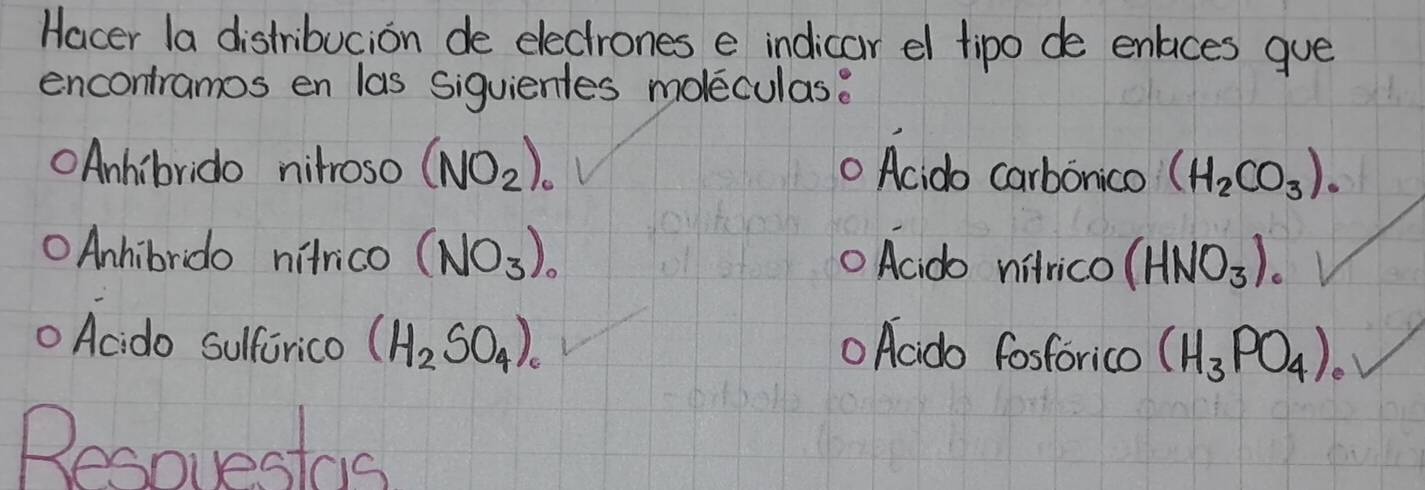 Hacer la distribución de electrones e indicar el tipo de enlaces que
encontramos en las siguientes moléculas:
○ Anhíbrido nitroso (NO₂).
○ Ácido carbónico (H₂CO₃).
○ Anhíbrido nítrico (NO₃).
○ Ácido nítrico (HNO₃).
○ Ácido sulfúrico (H₂SO₄).
○ Ácido fosfórico (H₃PO₄).
Respuestas